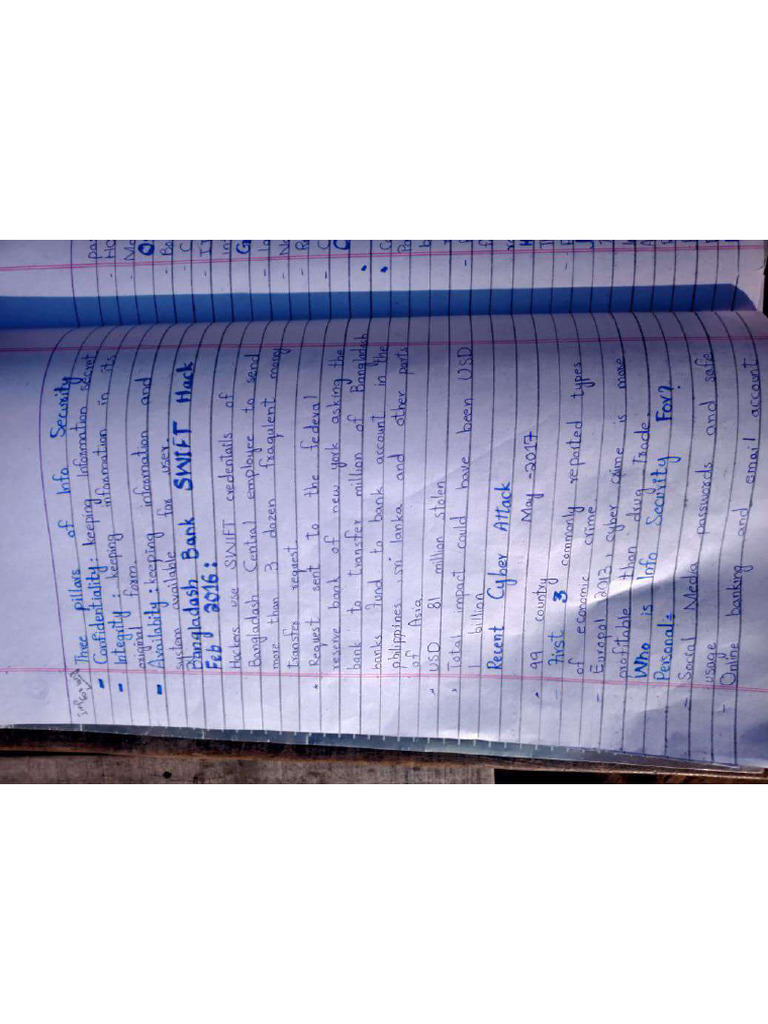 Three pillars of Info Security
- Confidentiality: keeping Information secret
- Integrity: keeping information in its
original form.
- Availabity: keeping information and
system available for user.
Bangladash Bank SWIFT Hack
Feb 2016:
Hackers use SWIFT credentails of
Bangladash Central employee to send
more than 3 dozen fraqulent money
transfer request
* Request sent to the fedeval
reserve bank of new york asking the
bank to transfer million of Bangladash
banks fund to bank account in the
philippines, sri lanka and other parts
of Asia
* USD 81 million stolen
* Total impact could have been USD
1 billion
Recent Cyber Attack
* 99 country May -2017
- First 3 commonly reported types
of economic crime
- Europol 2013, cyber crime is more
profitable than drug Trade.
Who is Info Security For?
Personal:
- Social Media passwords and safe
usage
- Online banking and email account